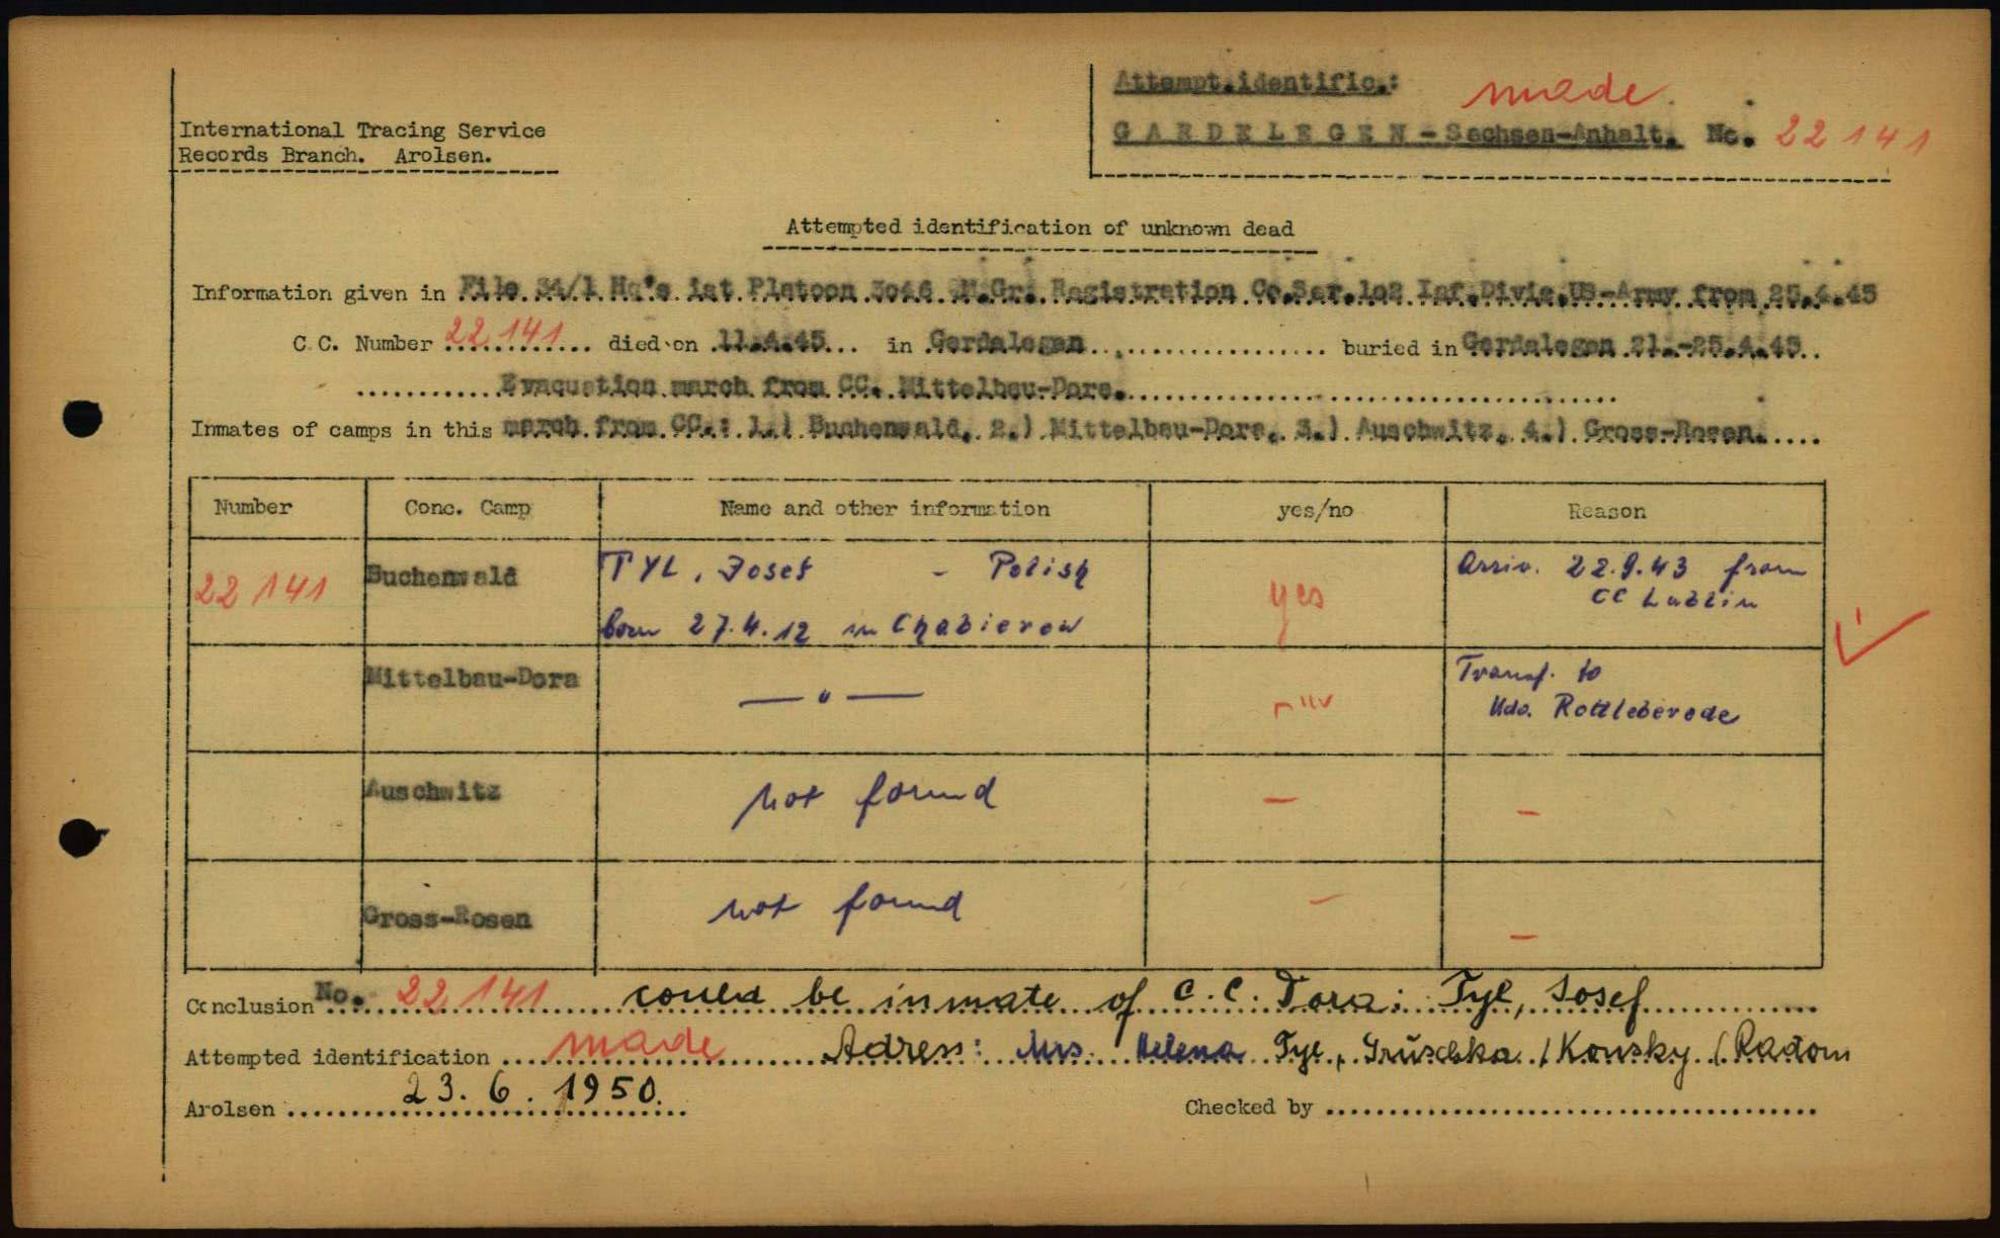 Attempt.identific.: made.
International Tracing Service
GARDELEGEN-Sachsen-Anhalt. No. 22141
Records Branch. Arolsen.
Attempted identification of unknown dead
Information given in File 34/1 Hq's 1st Platoon 3046 Gr. Registration Co.Ser.102 Inf.Divis.US-Army from 25.4.45
C.C. Number 22141 died on 11.4.45 in Gardelegen buried in Gardelegen 21.-25.4.45
Evacuation march from CC. Mittelbau-Dora.
Inmates of camps in this march from CC.: 1.) Buchenwald, 2.) Mittelbau-Dora, 3.) Auschwitz, 4.) Gross-Rosen.
Number Conc. Camp Name and other information yes/no Reason
22141 Buchenwald TYL, Josef - Polish yes Arriv. 22.9.43 from
CC Lublin
born 27.4.12 in Chabierow
Mittelbau-Dora — " — Transf. to
Kdo. Rottleberode
Auschwitz not found — —
Gross-Rosen not found — —
Conclusion No. 22141 could be inmate of C.C. Dora: Tyl, Josef
Attempted identification made Adress: Mrs. Helena Tyl, Gruschka / Konsky / Radom
Arolsen 23.6.1950. Checked by